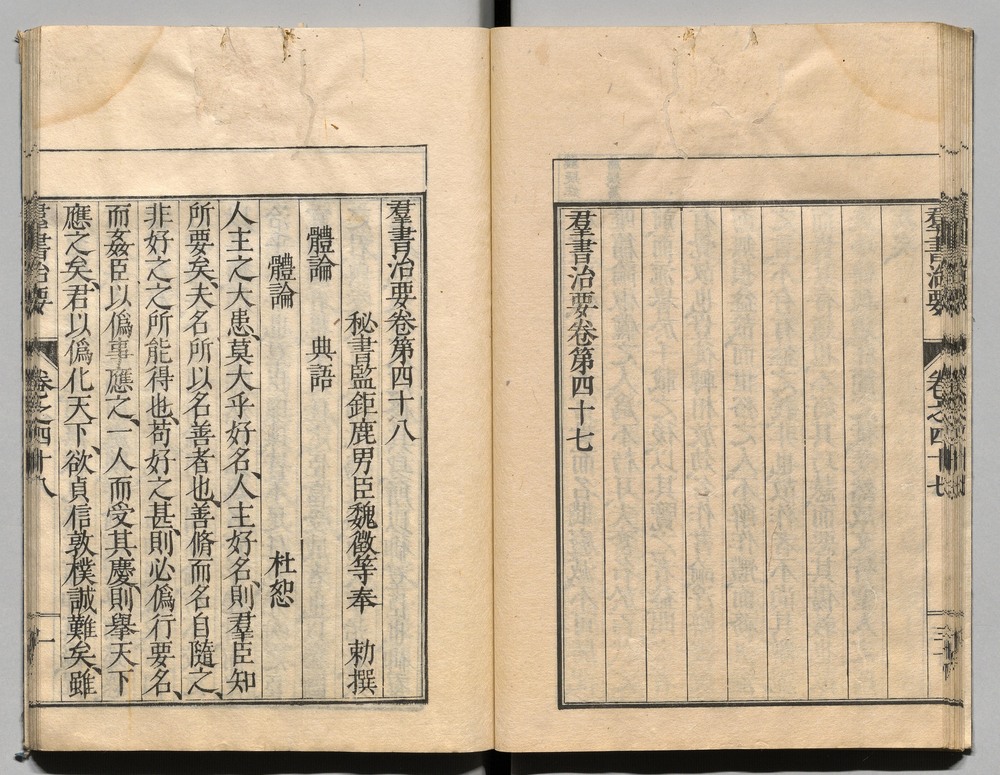 羣書治要 卷之四十七
羣書治要卷第四十七
羣書治要卷第四十八
秘書監鉅鹿男臣魏徵等奉 勅撰
體論 典語
體論 杜恕
人主之大患、莫大乎好名、人主好名、則羣臣知
所要矣、夫名所以名善者也、善脩而名自隨之、
非好之之所能得也、苟好之甚、則必僞行要名、
而姦臣以僞事應之、一人而受其慶、則舉天下
應之矣、君以僞化天下、欲貞信敦樸誠難矣、雖
羣書治要 卷之四十八 一